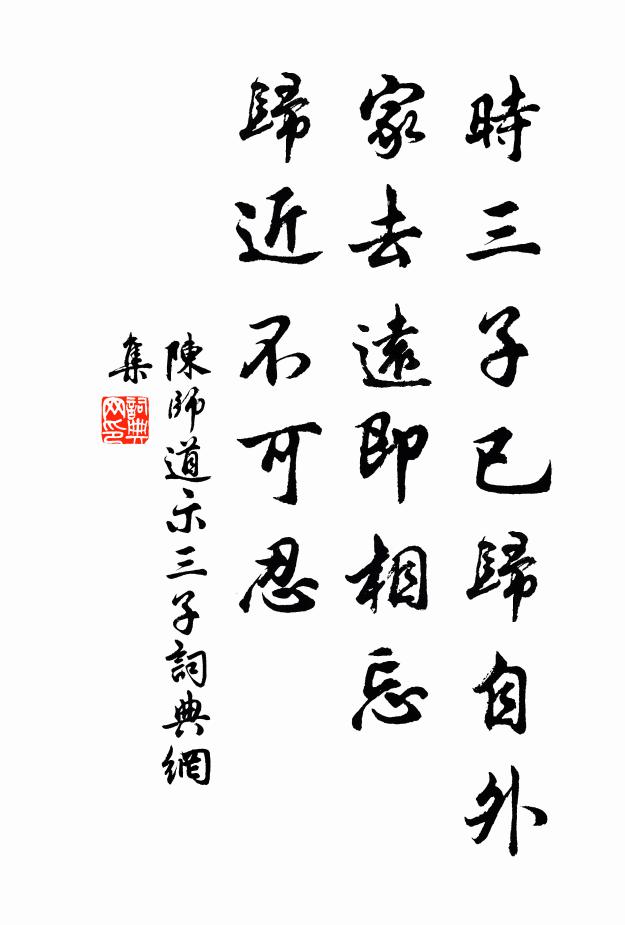 時三子已歸自外
家去遠即相忘
歸近不可忍
陳師道示三子詞典網
集
詞典
网印